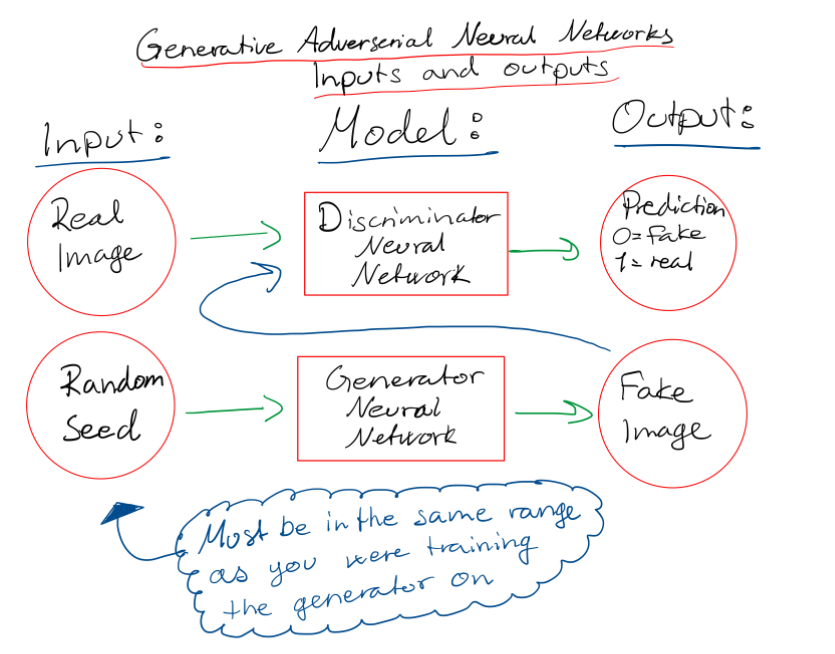 Generative Adverserial Neural Networks
Inputs and outputs
Input:
Model:
Output:
Real
Image
Discriminator
Neural
Network
Prediction
0=fake
1=real
Random
Seed
Generator
Neural
Network
Fake
Image
Must be in the same range
as you were training
the generator on